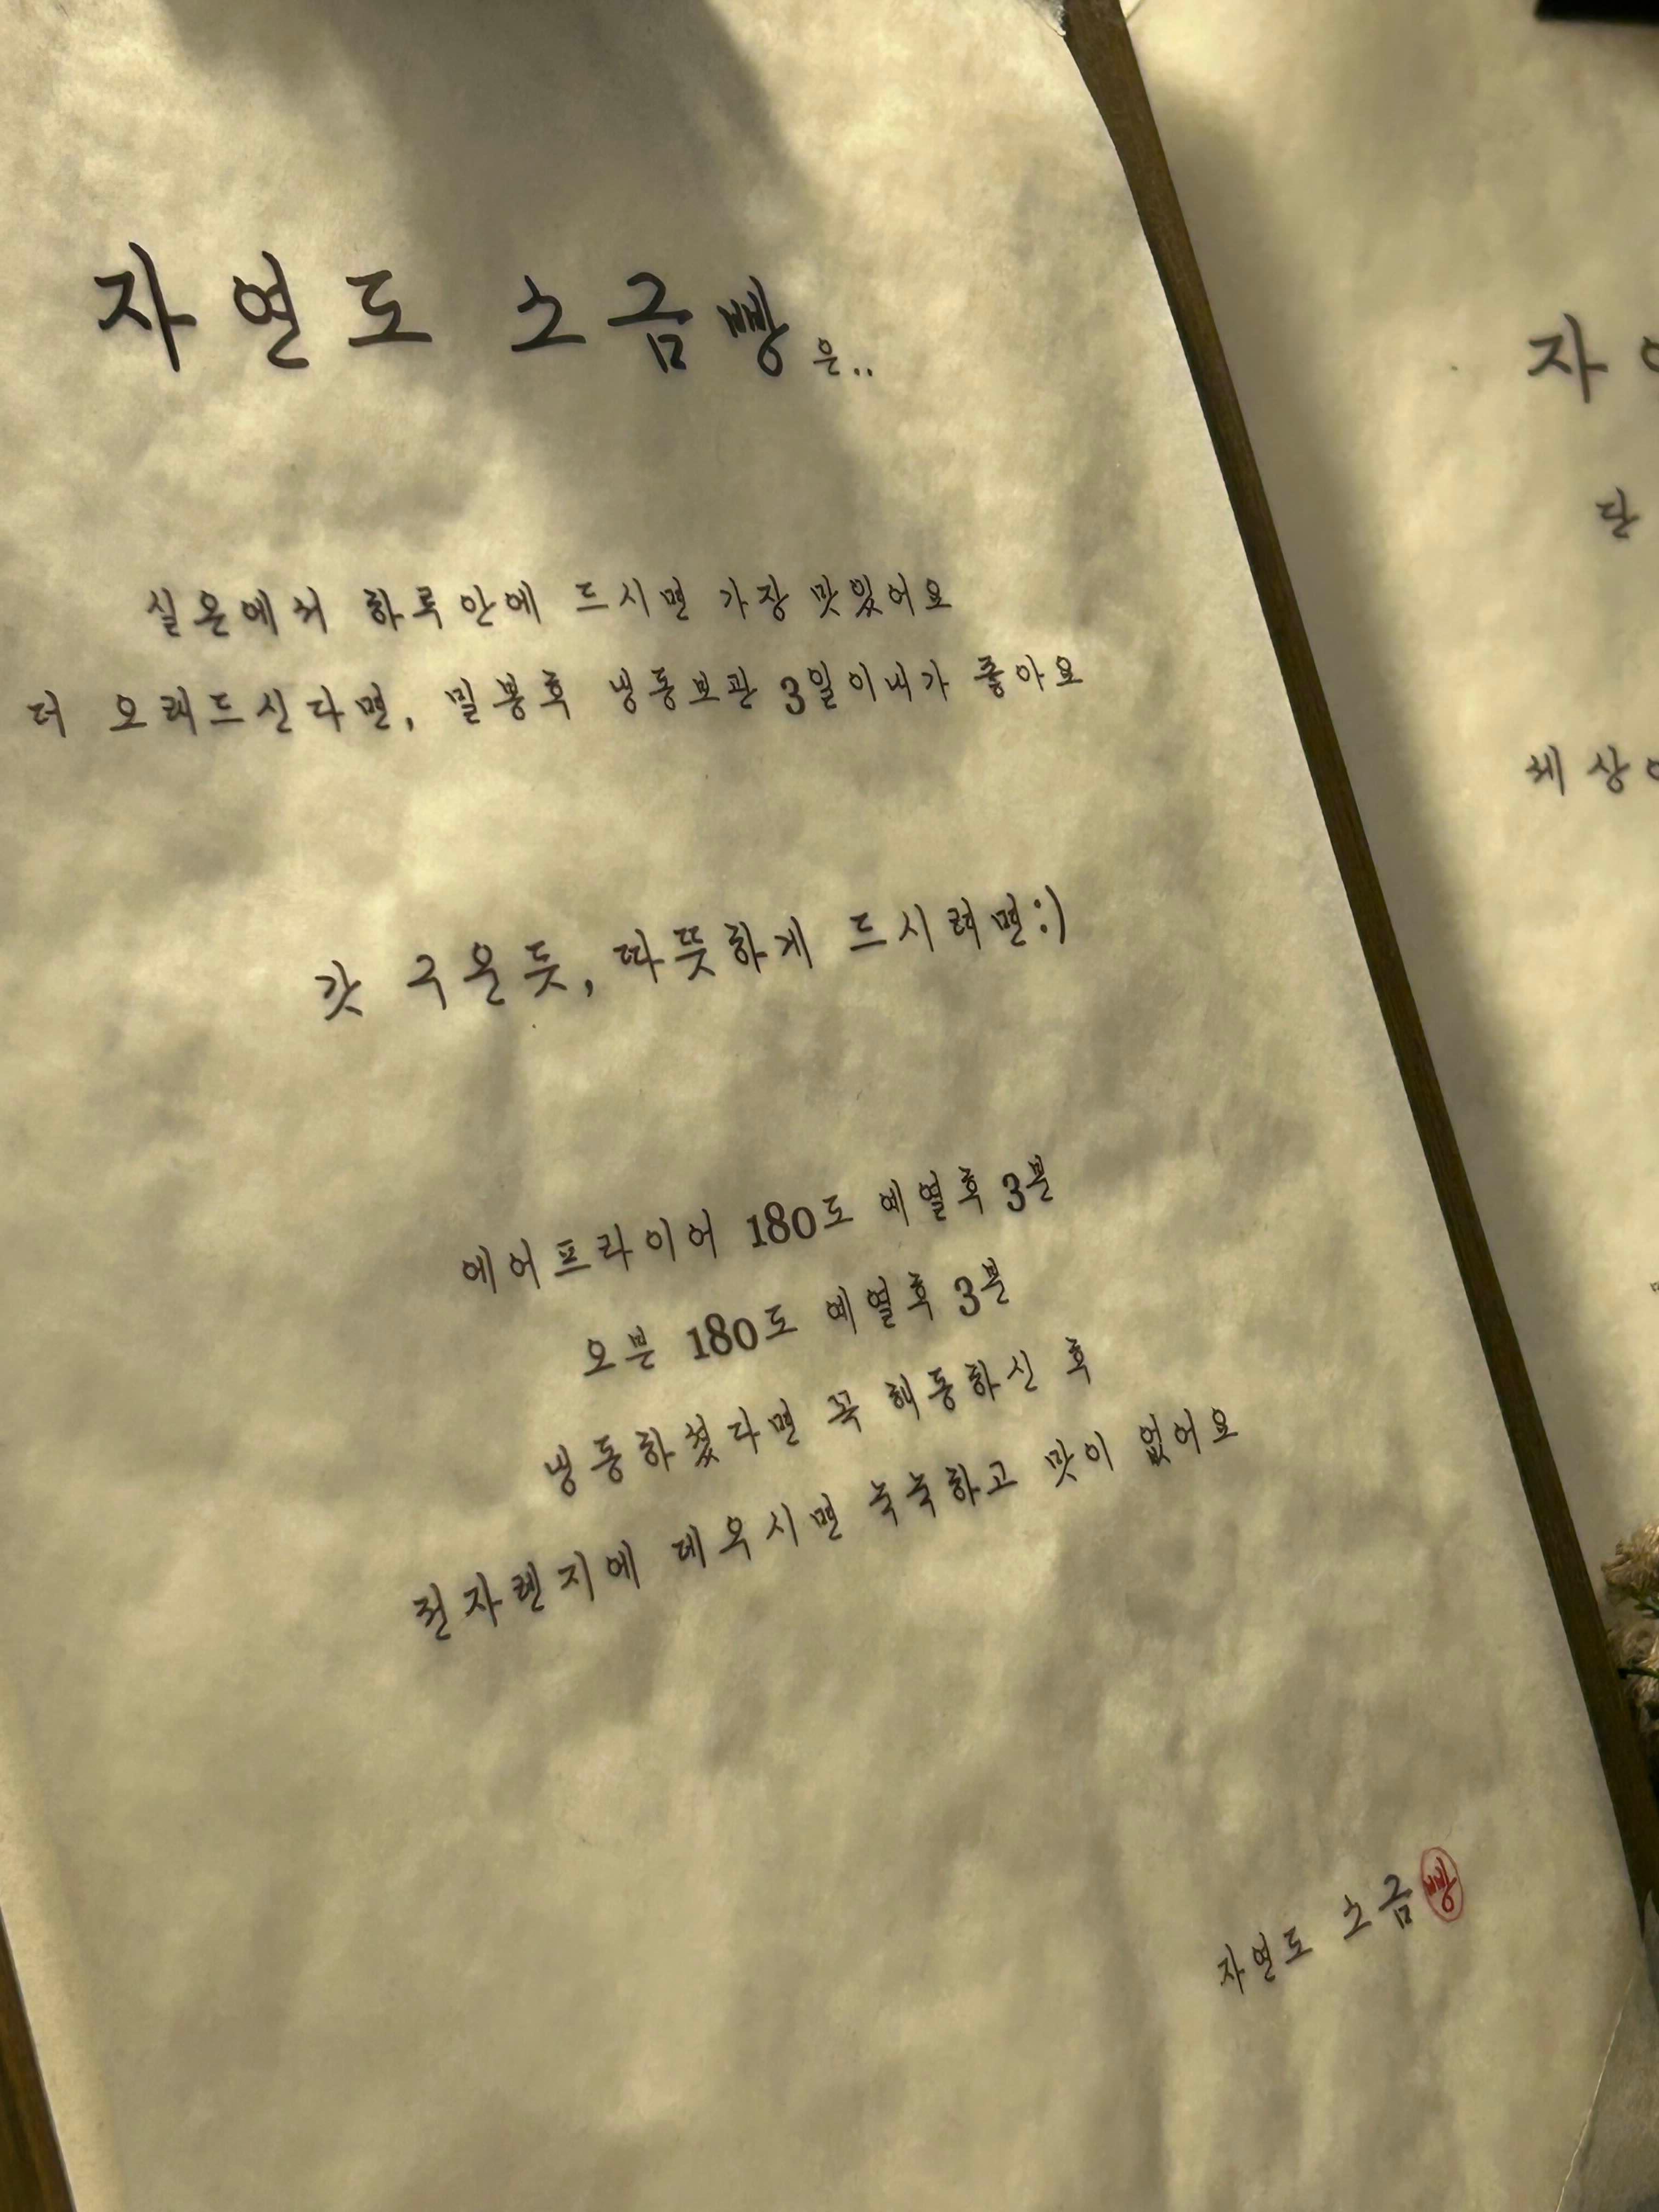 자연도 소금빵은..
실온에서 하루안에 드시면 가장 맛있어요
더 오래드신다면, 밀봉후 냉동보관 3일이내가 좋아요
갓 구운듯, 따뜻하게 드시려면:)
에어프라이어 180도 예열후 3분
오븐 180도 예열후 3분
냉동하셨다면 꼭 해동하신 후
전자렌지에 데우시면 눅눅하고 맛이 없어요
자연도 소금빵
자
단
세상